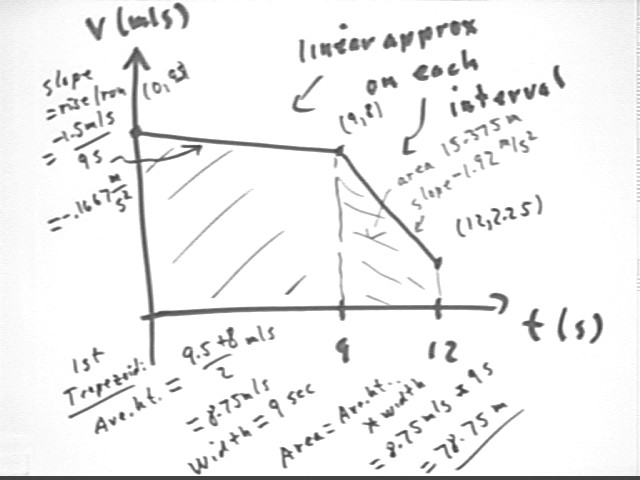 V (m/s)
linear approx
on each
interval
slope
= rise/run
= -1.5m/s
9s
= -.1667 m/s²
(9,8)
area 15.375 m
slope -1.92 m/s²
(12,2.25)
t (s)
9
12
1st
Trapezoid:
Ave.ht. = 9.5+8 m/s
2
= 8.75m/s
Width = 9 sec
Area = Ave.ht.
* width
= 8.75m/s * 9s
= 78.75 m